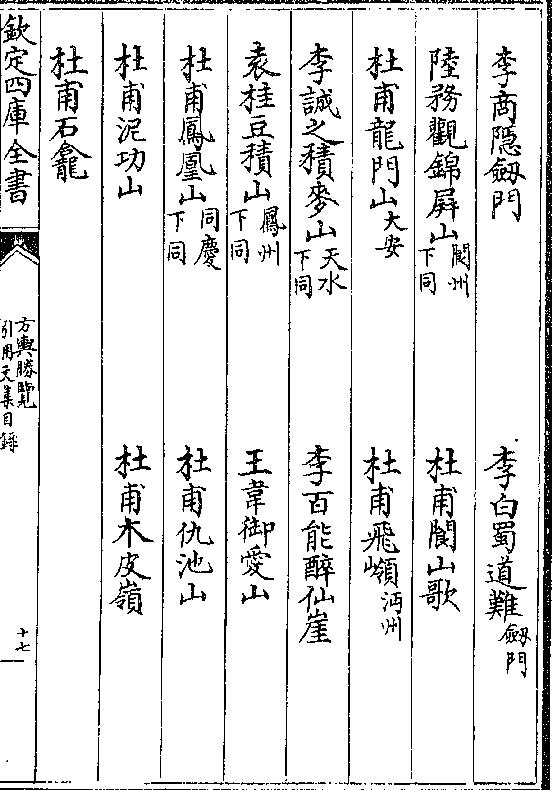 李商隠劒門　李白蜀道難劒門
陸務觀錦屏山閬州下同　杜甫閬山歌
杜甫龍門山大安　杜甫飛嶺沔州
李誠之積麥山天水下同　李百能醉仙崖
袁桂豆積山鳳州下同　王韋御愛山
杜甫鳳凰山同慶下同　杜甫仇池山
杜甫泥功山　杜甫木皮嶺
杜甫石龕
欽定四庫全書
方輿勝覽
引用文集目錄
十七